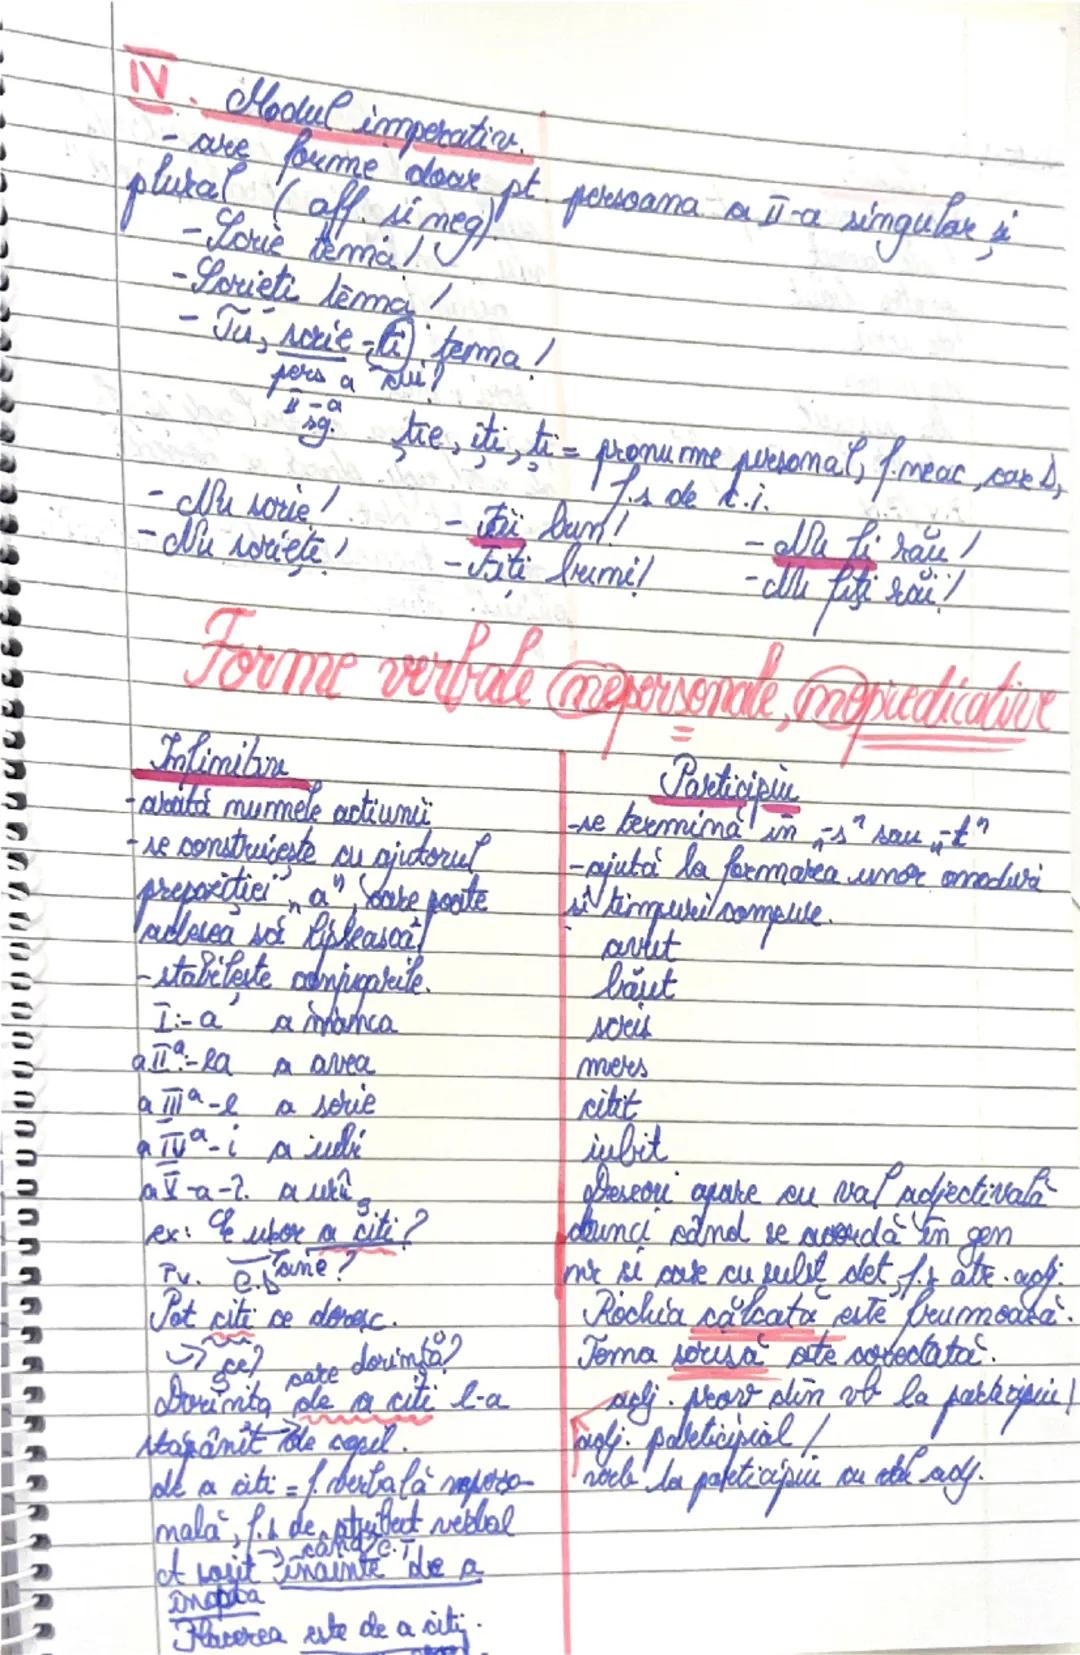 IV. Modul imperativ.
- are forme doar pt. persoana a II-a singular și
plural (aff. și neg).
- Scrie tema!
- Scrieți tema!
- Tu, scrie-ți tema!
pers a cui?
II-a
sg.
ție, îți, ți = pronume personal, f. neac, caz D,
f.s de c.i.
- Nu scrie!
- Nu scrieți!
- Fii bun!
- Fiți buni!
- Nu fi rău!
- Nu fiți răi!
Forme verbale nepersonale, nepredicative
Infinitiv
- arată numele acțiunii
- se construiește cu ajutorul
prepoziției „a", care poate
adesea să lipsească!
- stabilește conjugările.
I:-a a mânca
a II a:-ea a avea
a III a-e a scrie
a IV a-i a iubi
a V-a-î. a urî
ex: E ușor a citi?
Pv. cine?
Pot citi ce doresc.
ce? care dorință?
Dorința de a citi l-a
stăpânit de copil.
de a citi = f. verbală neperso-
nală, f.s de atribut verbal
când? c.T
A sosit înainte de a
înopta
Plăcerea este de a citi.
Participiu
- se termină în „-s" sau „-t"
- ajută la formarea unor moduri
și timpuri compuse.
avut
băut
scris
mers
citit
iubit
Deseori apare cu val adjectivală
atunci când se acordă în gen
nr și caz cu subst det, f.s atr. adj.
Rochia călcată este frumoasă.
Tema scrisă este corectată.
adj. prov din vb la participiu /
adj. participial /
verb la participiu cu val adj.